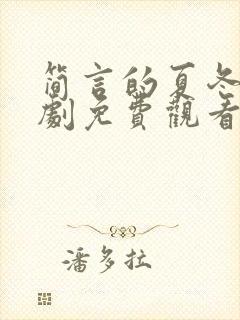 简言的夏冬
劇免費觀看
潘多拉